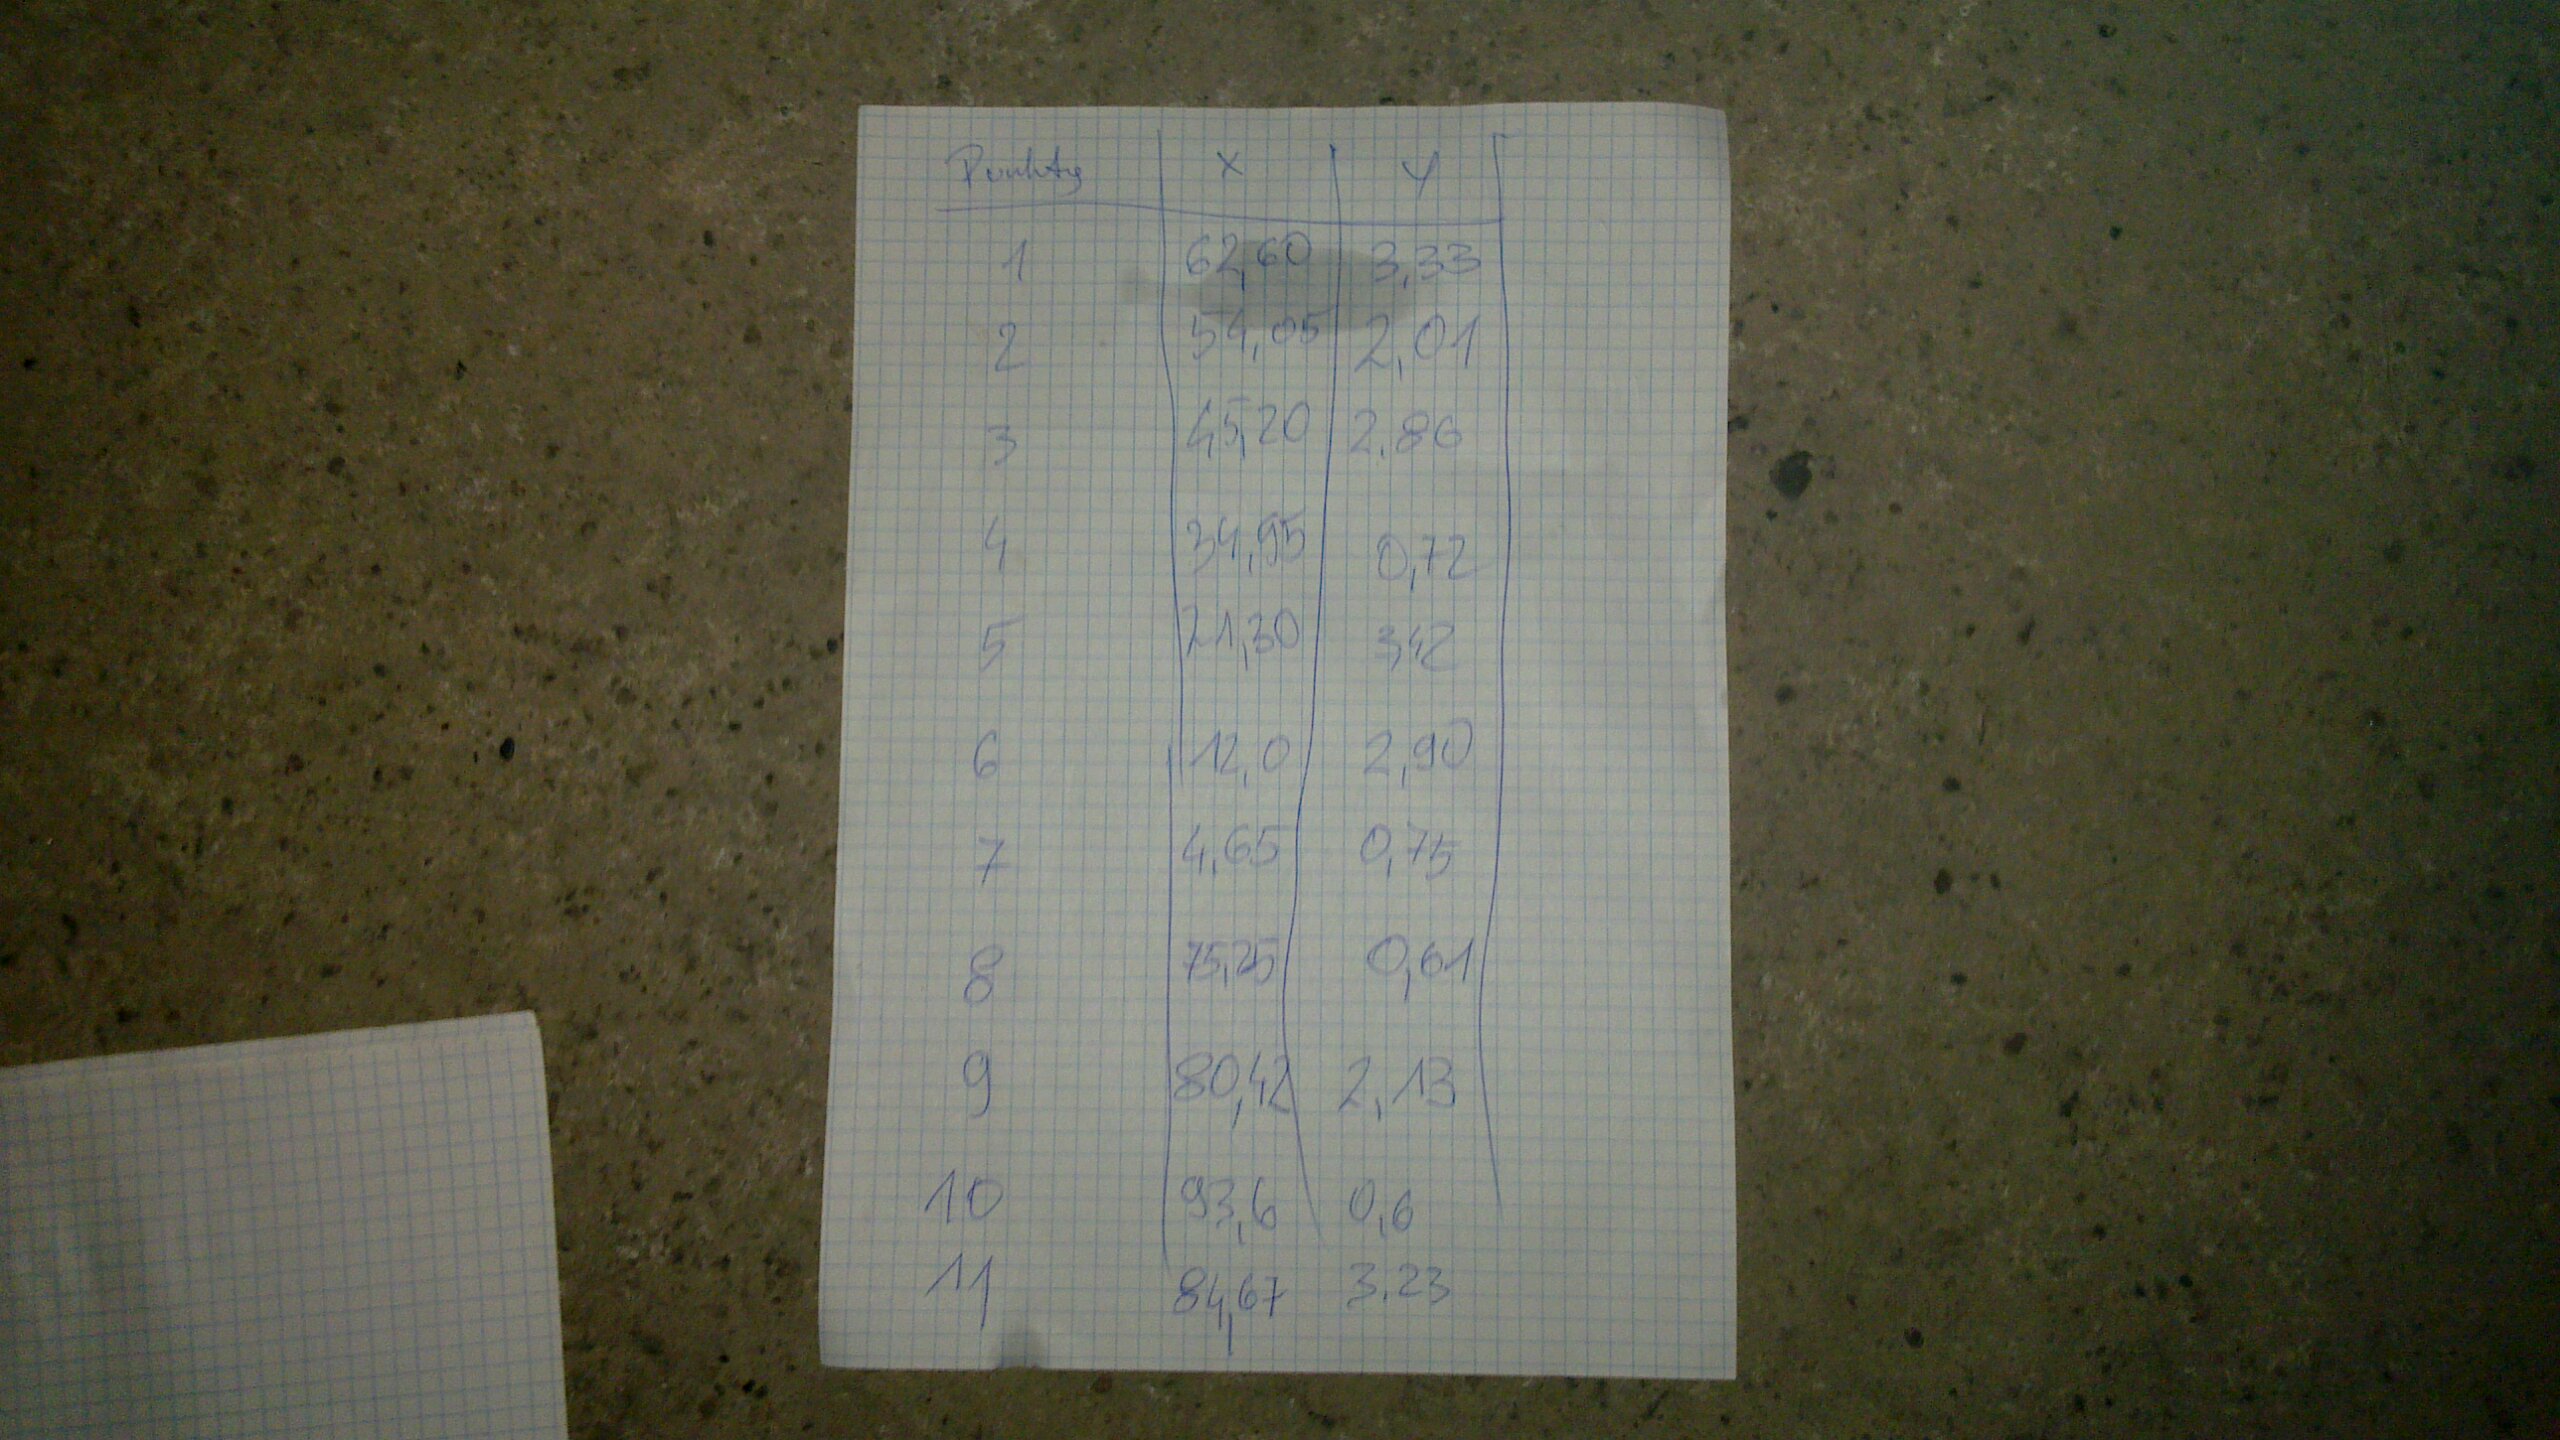 Punkty X Y
1 62,60 3,33
2 54,05 2,01
3 45,20 2,86
4 34,95 0,72
5 21,30 3,42
6 12,0 2,90
7 4,65 0,75
8 75,25 0,61
9 80,42 2,13
10 93,6 0,6
11 84,67 3.23